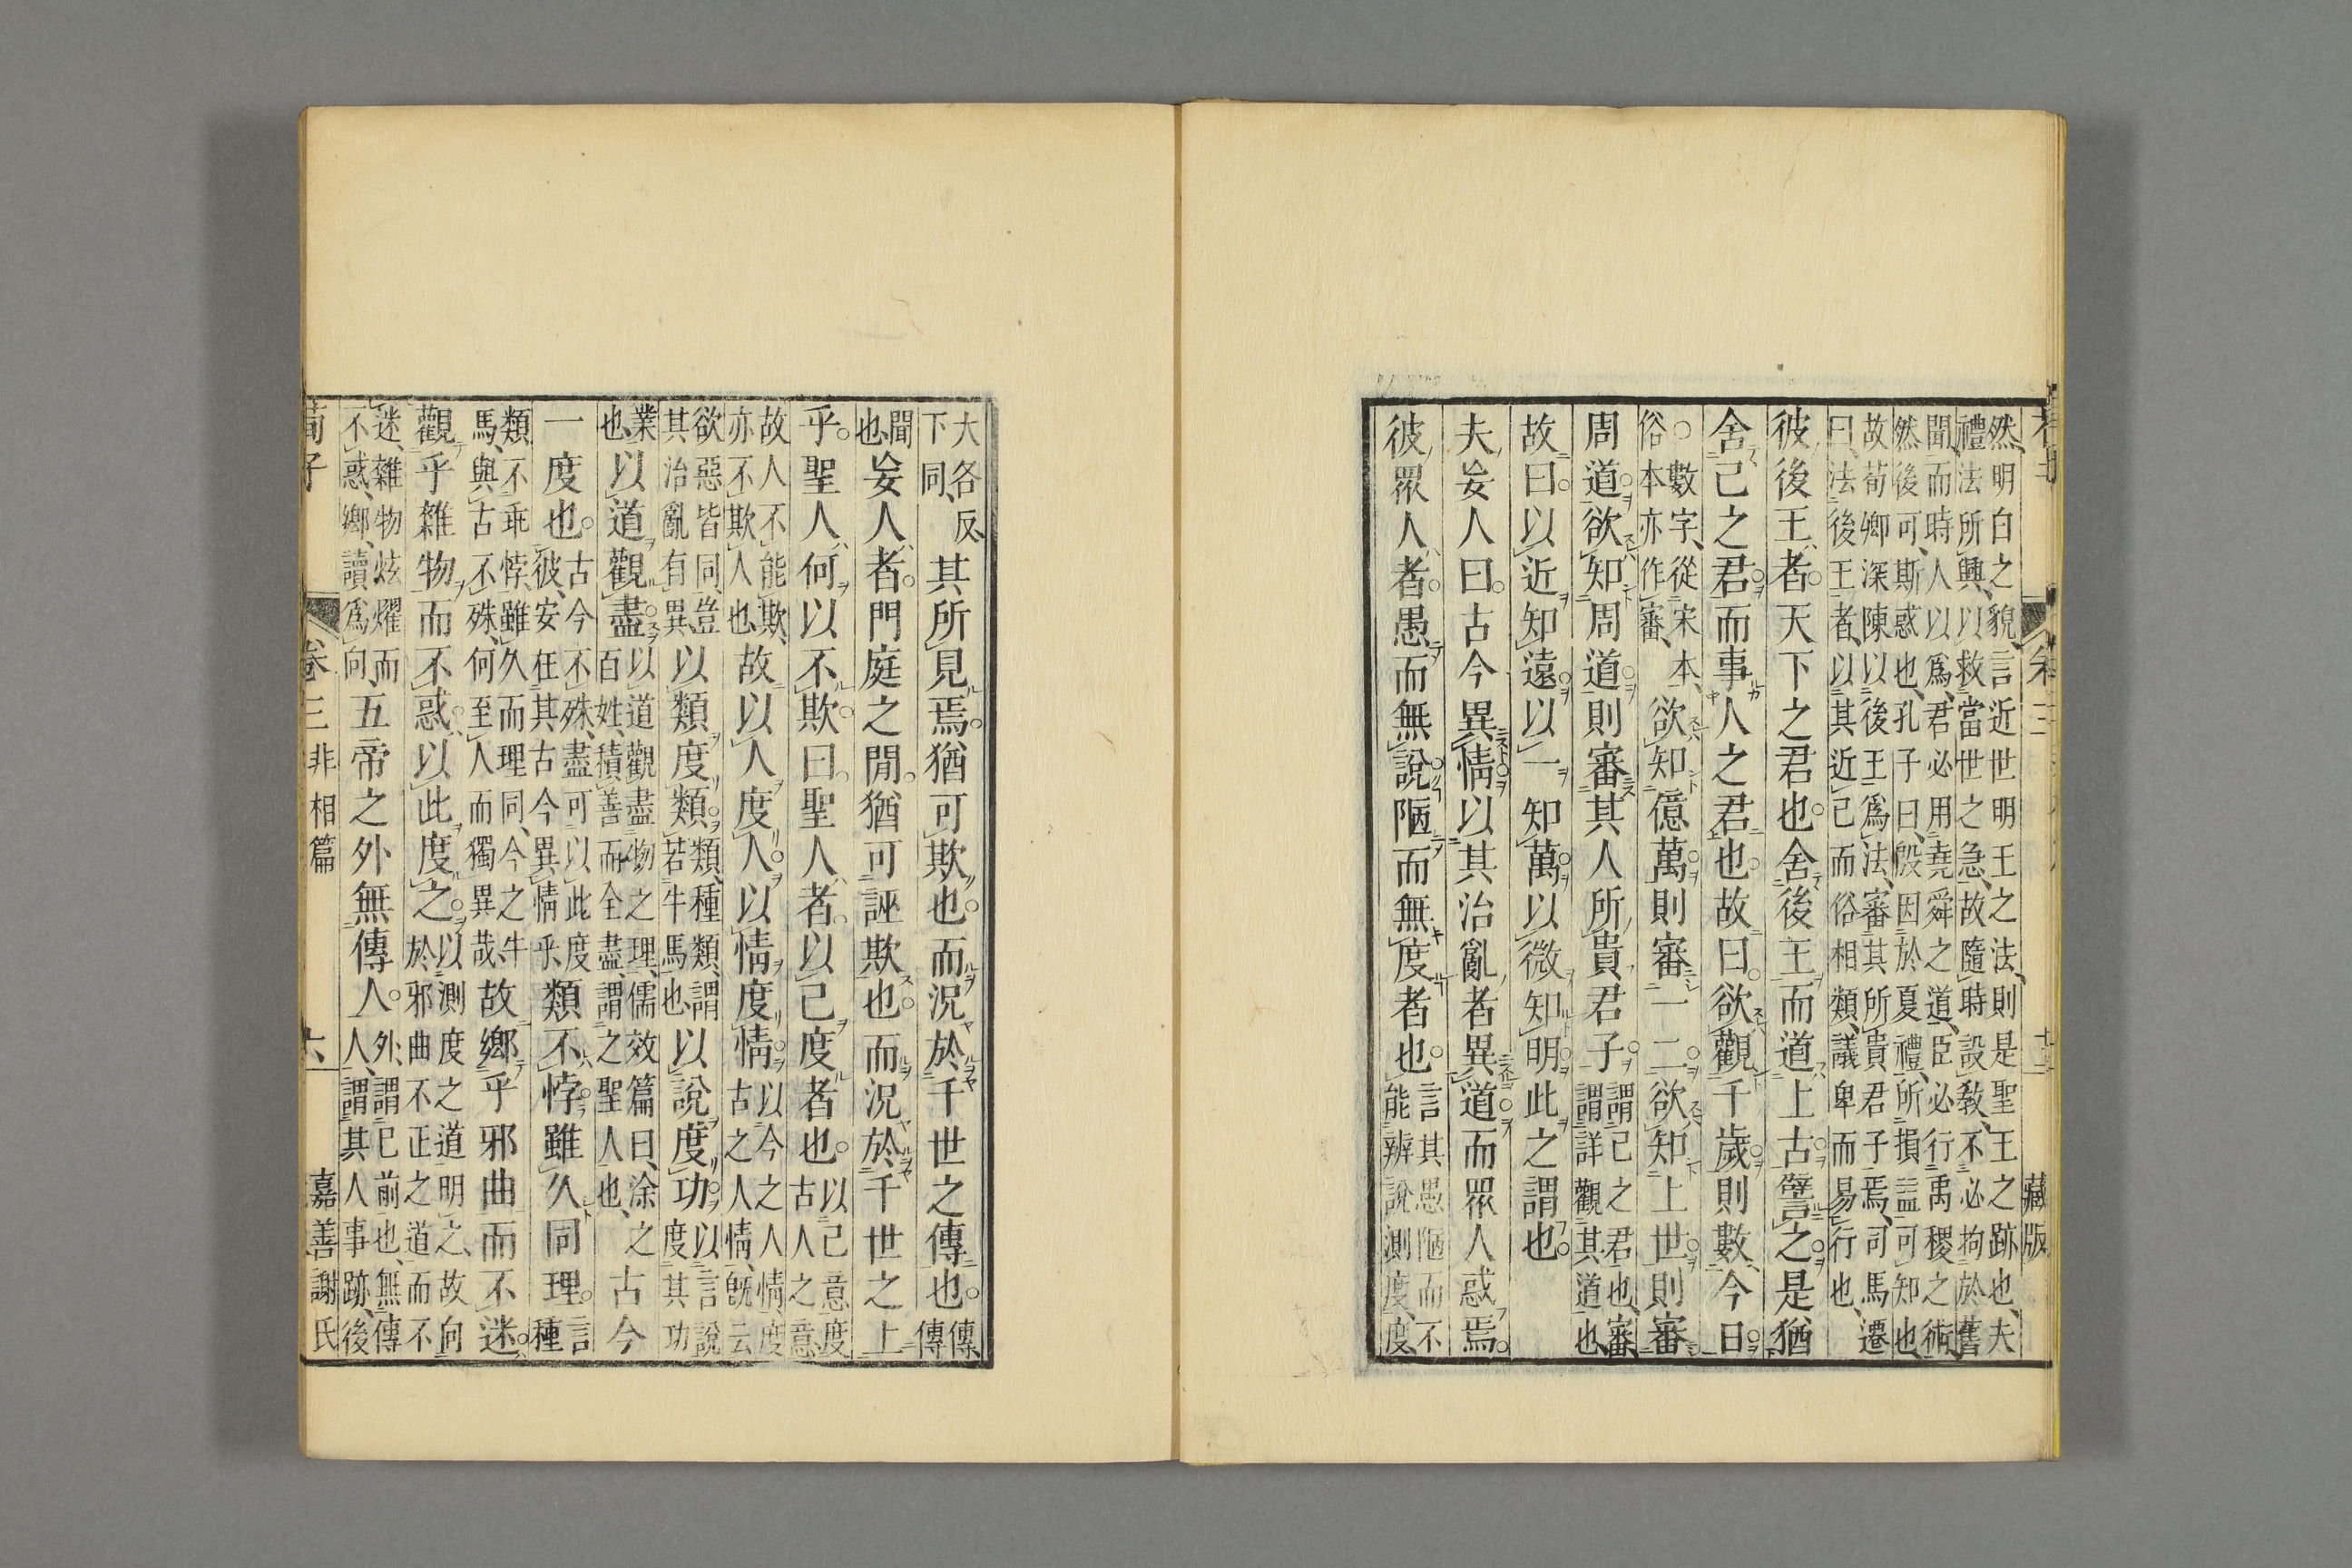 藏版
然、明白之貌、言近世明王之法、則是聖王之跡也、夫
禮法所興、以救當世之急、故隨時設敎、不必拘於舊
聞、而時人以爲、君必用堯舜之道、臣必行禹稷之術、
然後可、斯惑也、孔子曰、殷因於夏禮、所損益可知也、
故荀卿深陳以後王爲法、審其所貴君子焉、司馬遷
曰、法後王者、以其近己而俗相類、議卑而易行也、
彼後王者。天下之君也。舍後王而道上古。譬之。是猶
舍己之君。而事人之君也。故曰。欲觀千歲。則數今日。
○數字、從宋本、俗本亦作審、欲知億萬。則審一二。欲知上世。則審
周道。欲知周道。則審其人所貴君子。謂己之君也、審謂詳觀其道也、
故曰。以近知遠。以一知萬。以微知明。此之謂也。
夫妄人曰。古今異情。以其治亂者異道。而眾人惑焉。
彼眾人者。愚而無說。陋而無度者也。言其愚陋而不能辨說測度、度、
大各反、下同、其所見焉。猶可欺也。而況於千世之傳也。傳、傳
聞也、妄人者。門庭之閒。猶可誣欺也。而況於千世之上
乎。聖人何以不欺。曰。聖人者。以己度者也。以己意度古人之意
故人不能欺、亦不欺人也、故以人度人。以情度情。以今之人情、度古之人情、旣云
欲惡皆同、豈其治亂有異、以類度類。類、種類、謂若牛馬也、以說度功。以言說度其功
業也、以道觀盡。以道觀盡物之理、儒效篇曰、涂之百姓、積善而全盡、謂之聖人也、古今
一度也。古今不殊、盡可以此度彼、安在其古今異情乎、類不悖。雖久同理。言種
類不乖悖、雖久而理同、今之牛馬、與古不殊、何至人而獨異哉、故鄉乎邪曲而不迷。
觀乎雜物而不惑。以此度之。以測度之道明之、故向於邪曲不正之道而不
迷、雜物炫燿而不惑、鄉、讀爲向、五帝之外無傳人。外、謂已前也、無傳人、謂其人事跡、後
荀子 卷三 非相篇 六 嘉善謝氏